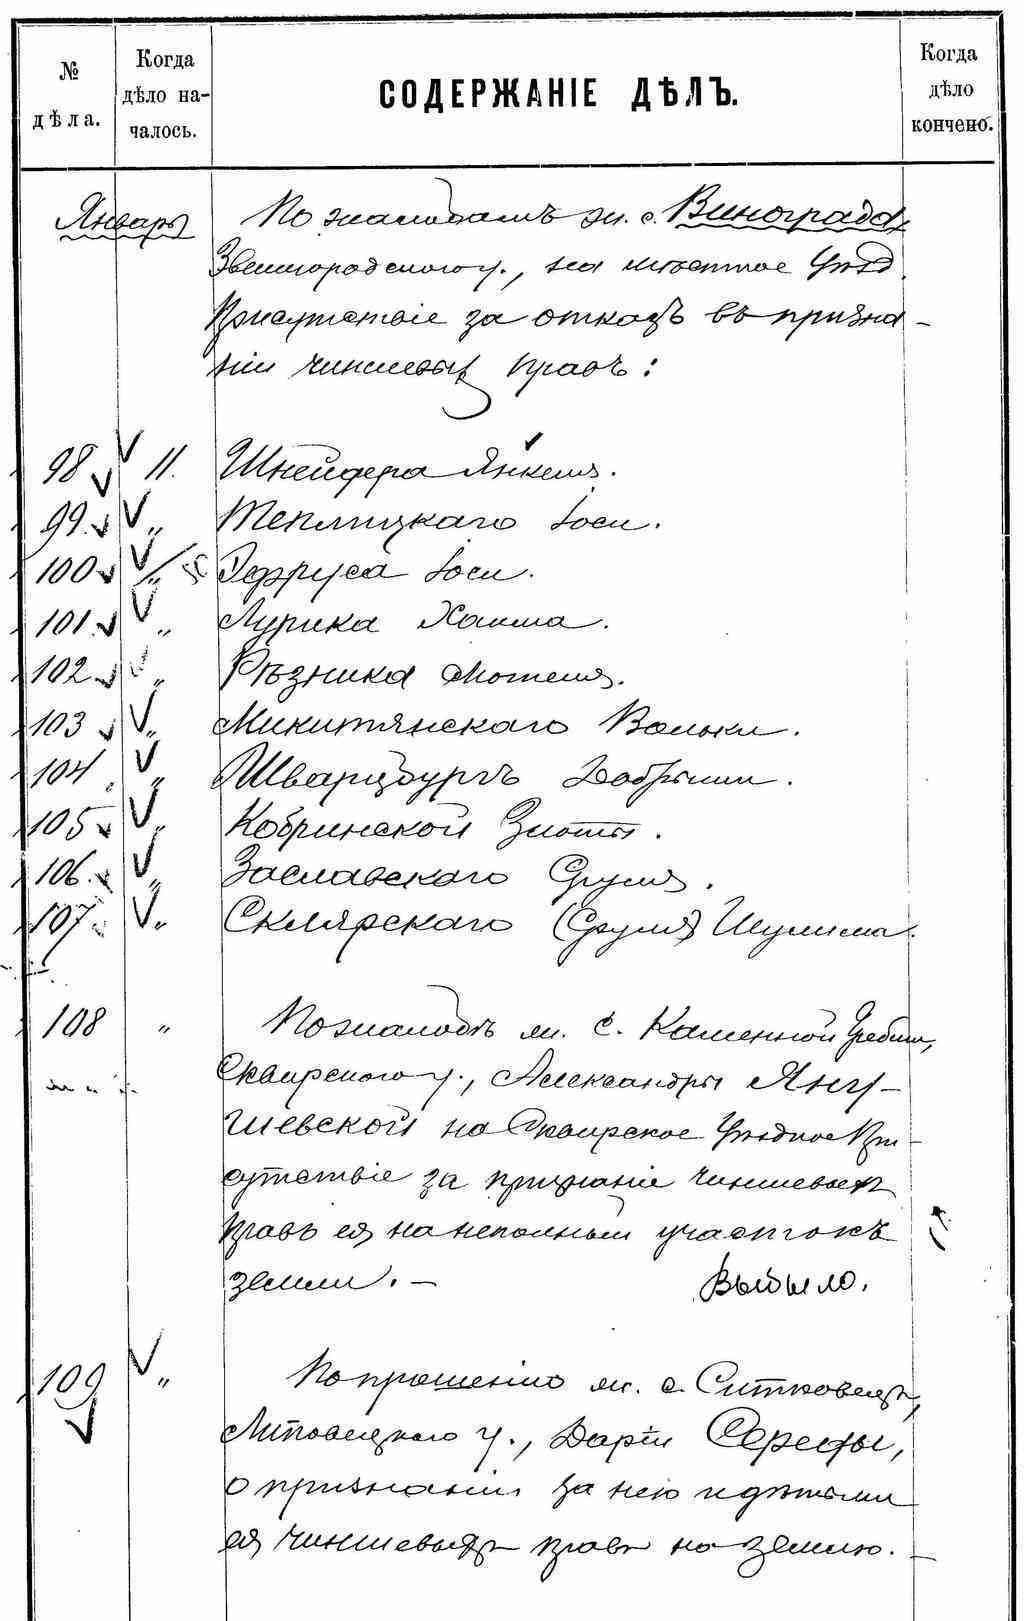 № дѣла.
Когда дѣло на-чалось.
СОДЕРЖАНІЕ ДѢЛЪ.
Когда дѣло кончено.
Январь
По жалобамъ жи. с. Винограда,
Звенигородскаго у., на мѣстное Уѣзд.
Присутствіе за отказъ въ призна-
ніи чиншевыхъ правъ:
98 11. Шнейдера Янкеля.
99. „ Теплицкаго Іоси.
100 „ Эфруса Іоси.
101. „ Лурика Хаима.
102 „ Рѣзника Мотеля.
103 „ Микитянскаго Вольки.
104. „ Шварцбургъ Добрыши.
105 „ Кобринской Злоты.
106. „ Заславскаго Сруля.
107 „ Склярскаго (Сруля) Шулима.
108 „ По жалобѣ жи. с. Каменной Гребли,
Сквирскаго у., Александры Яну-
шевской на Сквирское Уѣздное При-
сутствіе за признаніе чиншевыхъ
правъ ея на неполный участокъ
земли. — Выбыло.
109 „ По прошенію жи. с. Ситковецъ,
Липовецкаго у., Даріи Середы,
о признаніи за нею и дѣтьми
ея чиншевыхъ правъ на землю. —